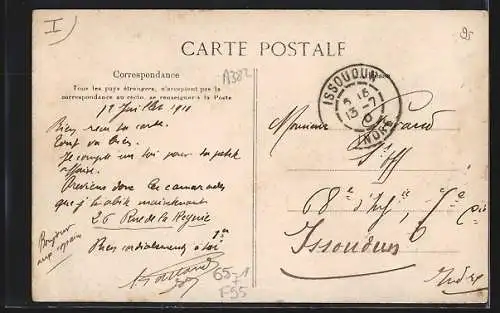 I
A382
95
CARTE POSTALE
Correspondance
Tous les pays étrangers, n'acceptent pas la
correspondance au recto, se renseigner à la Poste
12 Juillet 1910
Bien reçu ta carte.
Tout va bien.
Je compte sur toi pour ta petite
affaire.
Préviens donc les camarades
que j'habite maintenant
26 Rue de la Reynie
Bien cordialement à toi
Bonjour
aux copains
ISSOUDUN
13 -7
INDRE
Monsieur
68e d'Inf ie, 7e Cie
Issoudun
Indre
65-1
F55